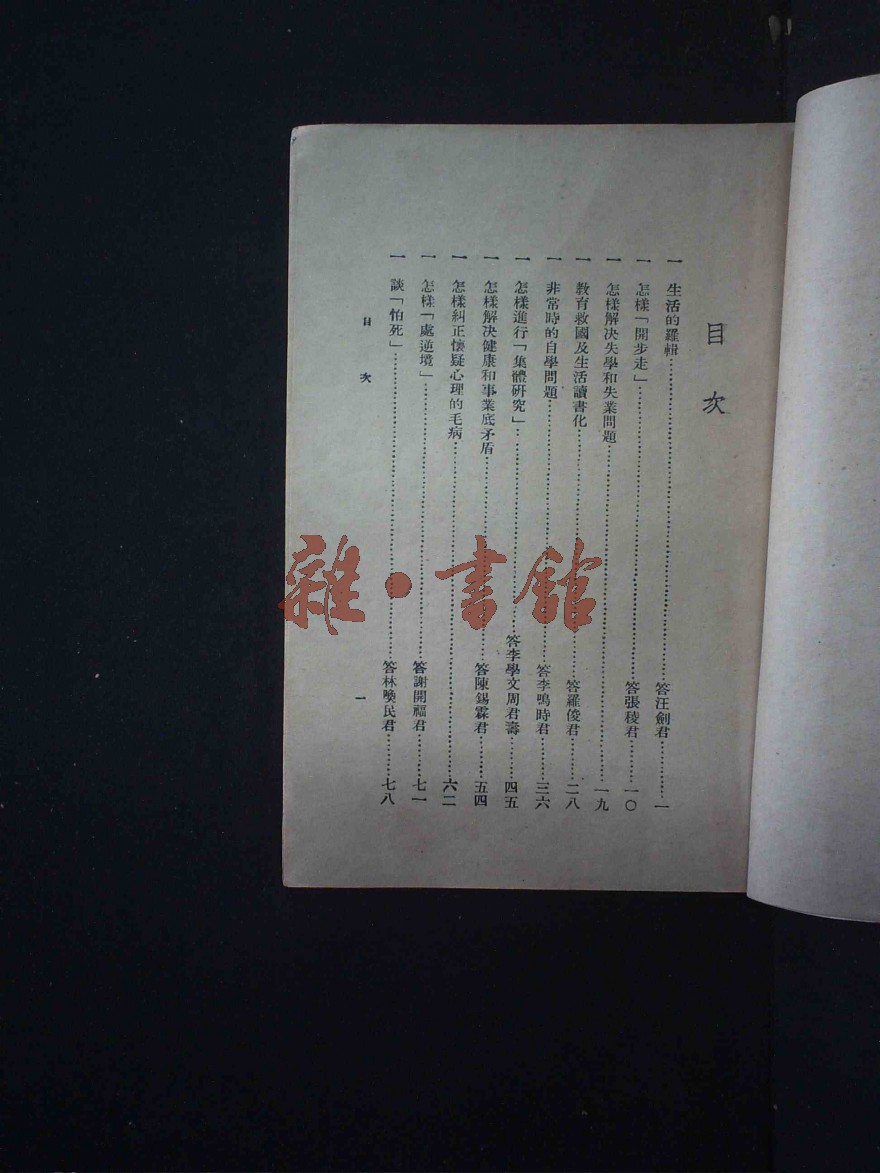 目次
一 生活的羅輯……答汪劍君……一
一 怎樣「開步走」……答張稜君……一〇
一 怎樣解决失學和失業問題……一九
一 教育救國及生活讀書化……答羅俊君……二八
一 非常時的自學問題……答李鳴時君……三六
一 怎樣進行「集體研究」……答李學文周君壽……四五
一 怎樣解决健康和事業底矛盾……答陳錫霖君……五四
一 怎樣糾正懷疑心理的毛病……六二
一 怎樣「處逆境」……答謝開福君……七一
一 談「怕死」……答林喚民君……七八
目次
一
雜·書館